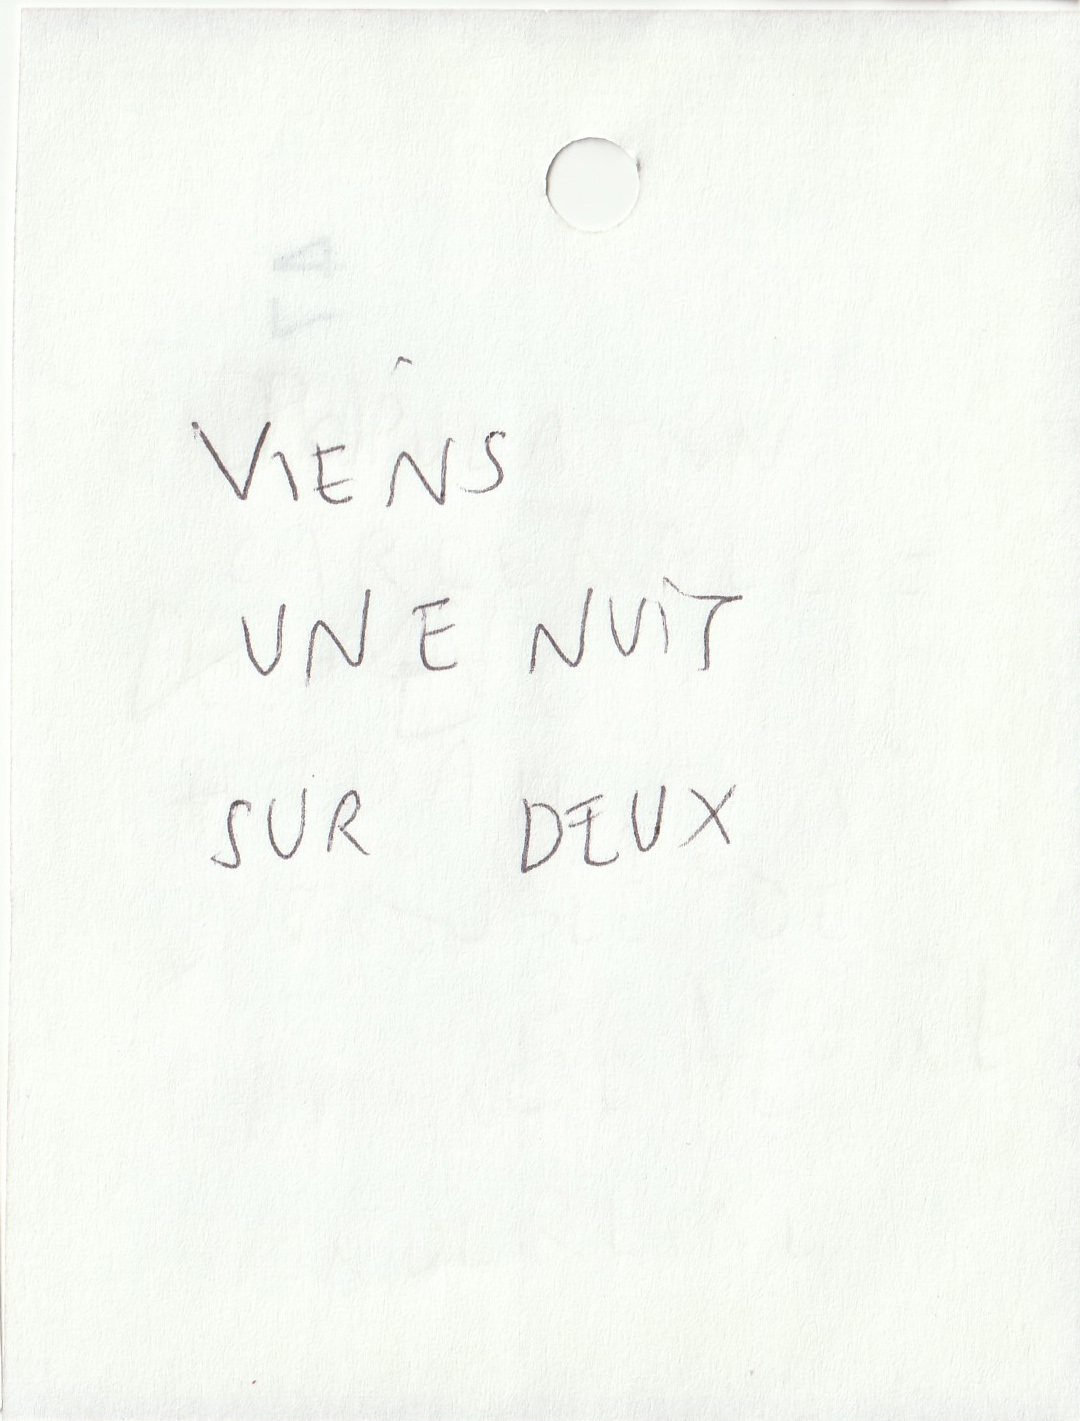 VIENS
UNE NUIT
SUR DEUX